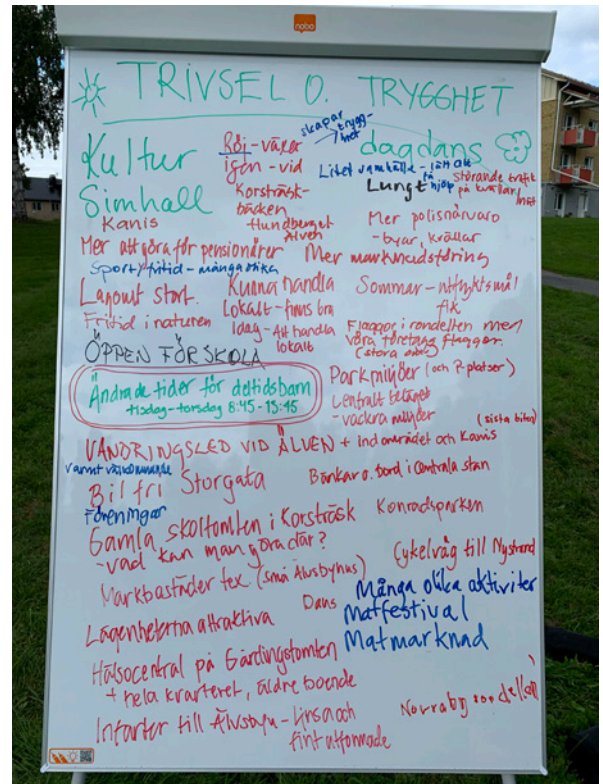 nobo
TRIVSEL O. TRYGGHET
Kultur
Röj - växer
igen - vid
Korsträsk-
bäcken
Hundberget
Älven
skapar
trygg-
het
dagdans
Litet samhälle - lätt att
få
hjälp
Lungt
störande trafik
på kvällar/
natt
Simhall
Kanis
Mer polisnärvaro
- byar, kvällar
Mer att göra för pensionärer
Mer marknadsföring
Sport/fritid - många olika
Lagomt stort.
Fritid i naturen
Kunna handla
lokalt - finns bra
idag - att handla
lokalt
Sommar - utflyktsmål
fik
Flaggor i rondellen med
våra företags flaggor.
(stora)
ÖPPEN FÖRSKOLA
Ändrade tider för deltidsbarn
tisdag - torsdag 8:45 - 15:45
Parkmiljöer (och P-platser)
Centralt beläget
- vackra miljöer
(sista biten)
VANDRINGSLED VID ÄLVEN + ind området och Kanis
Varmt välkomnande
Bilfri Storgata
Bänkar o. bord i centrala stan
Föreningar
Gamla skoltomten i Korsträsk
- vad kan man göra där?
Konradsparken
Cykelväg till Nystrand
Markbostäder tex (små Älvsbyhus)
Många olika aktiviter
Lägenheterna attraktiva
Dans
Matfestival
Matmarknad
Hälsocentral på Gärdingstomten
+ hela kvarteret, äldre boende
Infarter till Älvsbyn - ljusa och
fint utformade
Norraby